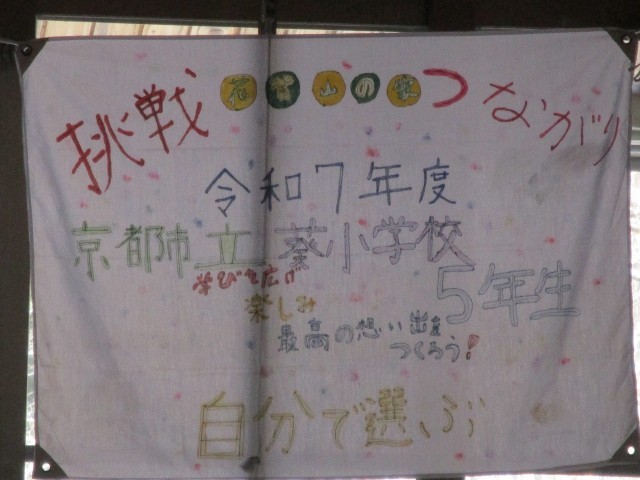 挑戦 花背山の家 つながり
令和7年度
京都市立 葵小学校
学びを広げ
5年生
楽しみ
最高の想い出を
つくろう!
自分で選ぶ